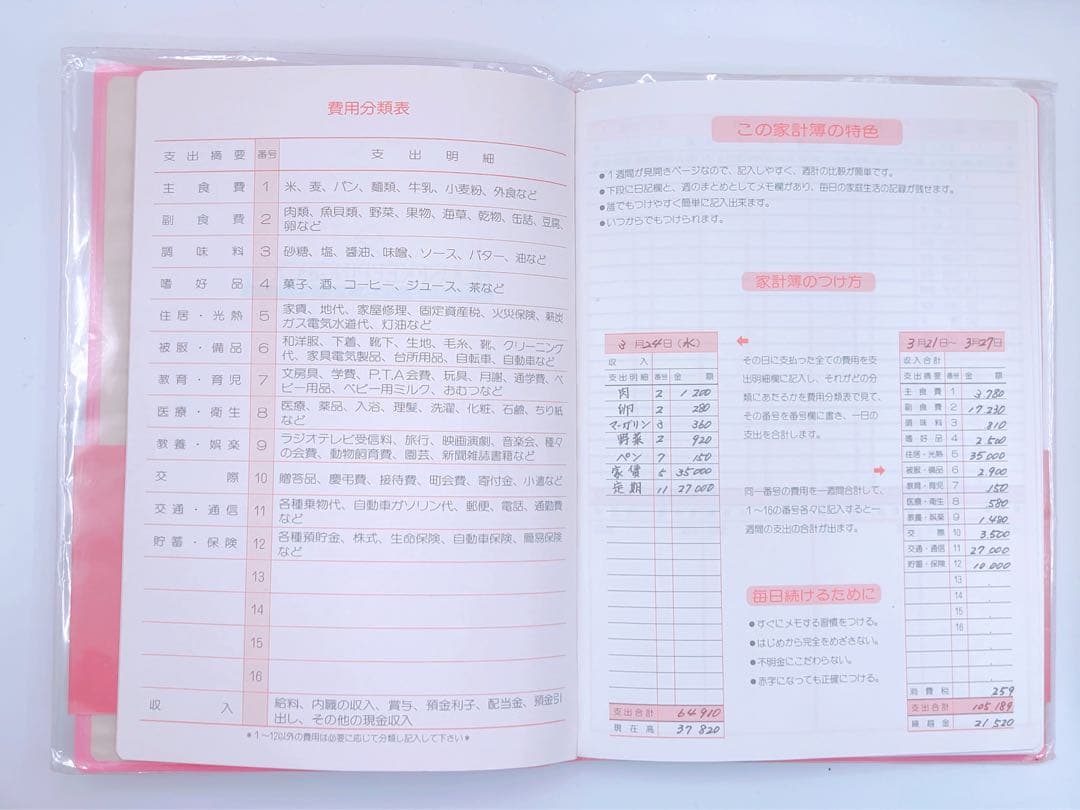 費用分類表
支出摘要 番号 支出明細
主食費 1 米、麦、パン、麺類、牛乳、小麦粉、外食など
副食費 2 肉類、魚貝類、野菜、果物、海草、乾物、缶詰、豆腐、
卵など
調味料 3 砂糖、塩、醬油、味噌、ソース、バター、油など
嗜好品 4 菓子、酒、コーヒー、ジュース、茶など
住居・光熱 5 家賃、地代、家屋修理、固定資産税、火災保険、薪炭
ガス電気水道代、灯油など
被服・備品 6 和洋服、下着、靴下、生地、毛糸、靴、クリーニング
代、家具電気製品、台所用品、自転車、自動車など
教育・育児 7 文房具、学費、P.T.A会費、玩具、月謝、通学費、ベ
ビー用品、ベビー用ミルク、おむつなど
医療・衛生 8 医療、薬品、入浴、理髪、洗濯、化粧、石鹼、ちり紙
など
教養・娯楽 9 ラジオテレビ受信料、旅行、映画演劇、音楽会、種々
の会費、動物飼育費、園芸、新聞雑誌書籍など
交際 10 贈答品、慶弔費、接待費、町会費、寄付金、小遣など
交通・通信 11 各種乗物代、自動車ガソリン代、郵便、電話、通勤費
など
貯蓄・保険 12 各種預貯金、株式、生命保険、自動車保険、簡易保険
など
13
14
15
16
収入 給料、内職の収入、賞与、預金利子、配当金、預金引
出し、その他の現金収入
*1〜12以外の費用は必要に応じて分類し記入して下さい*
この家計簿の特色
●1週間が見開きページなので、記入しやすく、週計の比較が簡単です。
●下段に日記欄と、週のまとめとしてメモ欄があり、毎日の家庭生活の記録が残せます。
●誰でもつけやすく簡単に記入出来ます。
●いつからでもつけられます。
家計簿のつけ方
3月24日(水)
収入
支出明細 番号 金額
肉 2 1 200
卵 2 280
マーガリン 3 360
野菜 2 920
ペン 7 150
家賃 5 35000
定期 11 27 000
支出合計 64 910
現在高 37 820
←
その日に支払った全ての費用を支
出明細欄に記入し、それがどの分
類にあたるかを費用分類表で見て、
その番号を番号欄に書き、一日の
支出を合計します。
→
同一番号の費用を一週間合計して、
1〜16の番号各々に記入すると一
週間の支出の合計が出ます。
毎日続けるために
●すぐにメモする習慣をつける。
●はじめから完全をめざさない。
●不明金にこだわらない。
●赤字になっても正確につける。
3月21日〜3月27日
収入合計
支出摘要 番号 金額
主食費 1 3.780
副食費 2 17.230
調味料 3 810
嗜好品 4 2 500
住居・光熱 5 35 000
被服・備品 6 2.900
教育・育児 7 150
医療・衛生 8 580
教養・娯楽 9 1.480
交際 10 3.500
交通・通信 11 27 000
貯蓄・保険 12 10 000
13
14
15
16
消費税 259
支出合計 105 189
繰越金 21 520